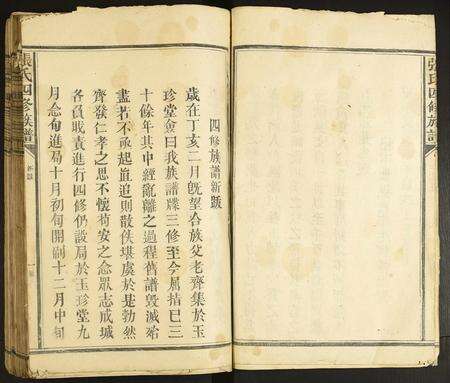 張氏四修族譜
四修族譜新跋
歲在丁亥二月既望合族父老齊集於玉
珍堂僉曰我族譜牒三修至今屈指已三
十餘年其中經亂離之過程舊譜毀滅殆
盡若不亟起直追則散佚堪虞於是勃然
齊發仁孝之思不懷苟安之念眾志成城
各負敢責進行四修仍設局於玉珍堂九
月念旬進局十月初旬開剞十二月中旬
張氏四修族譜
新跋
一